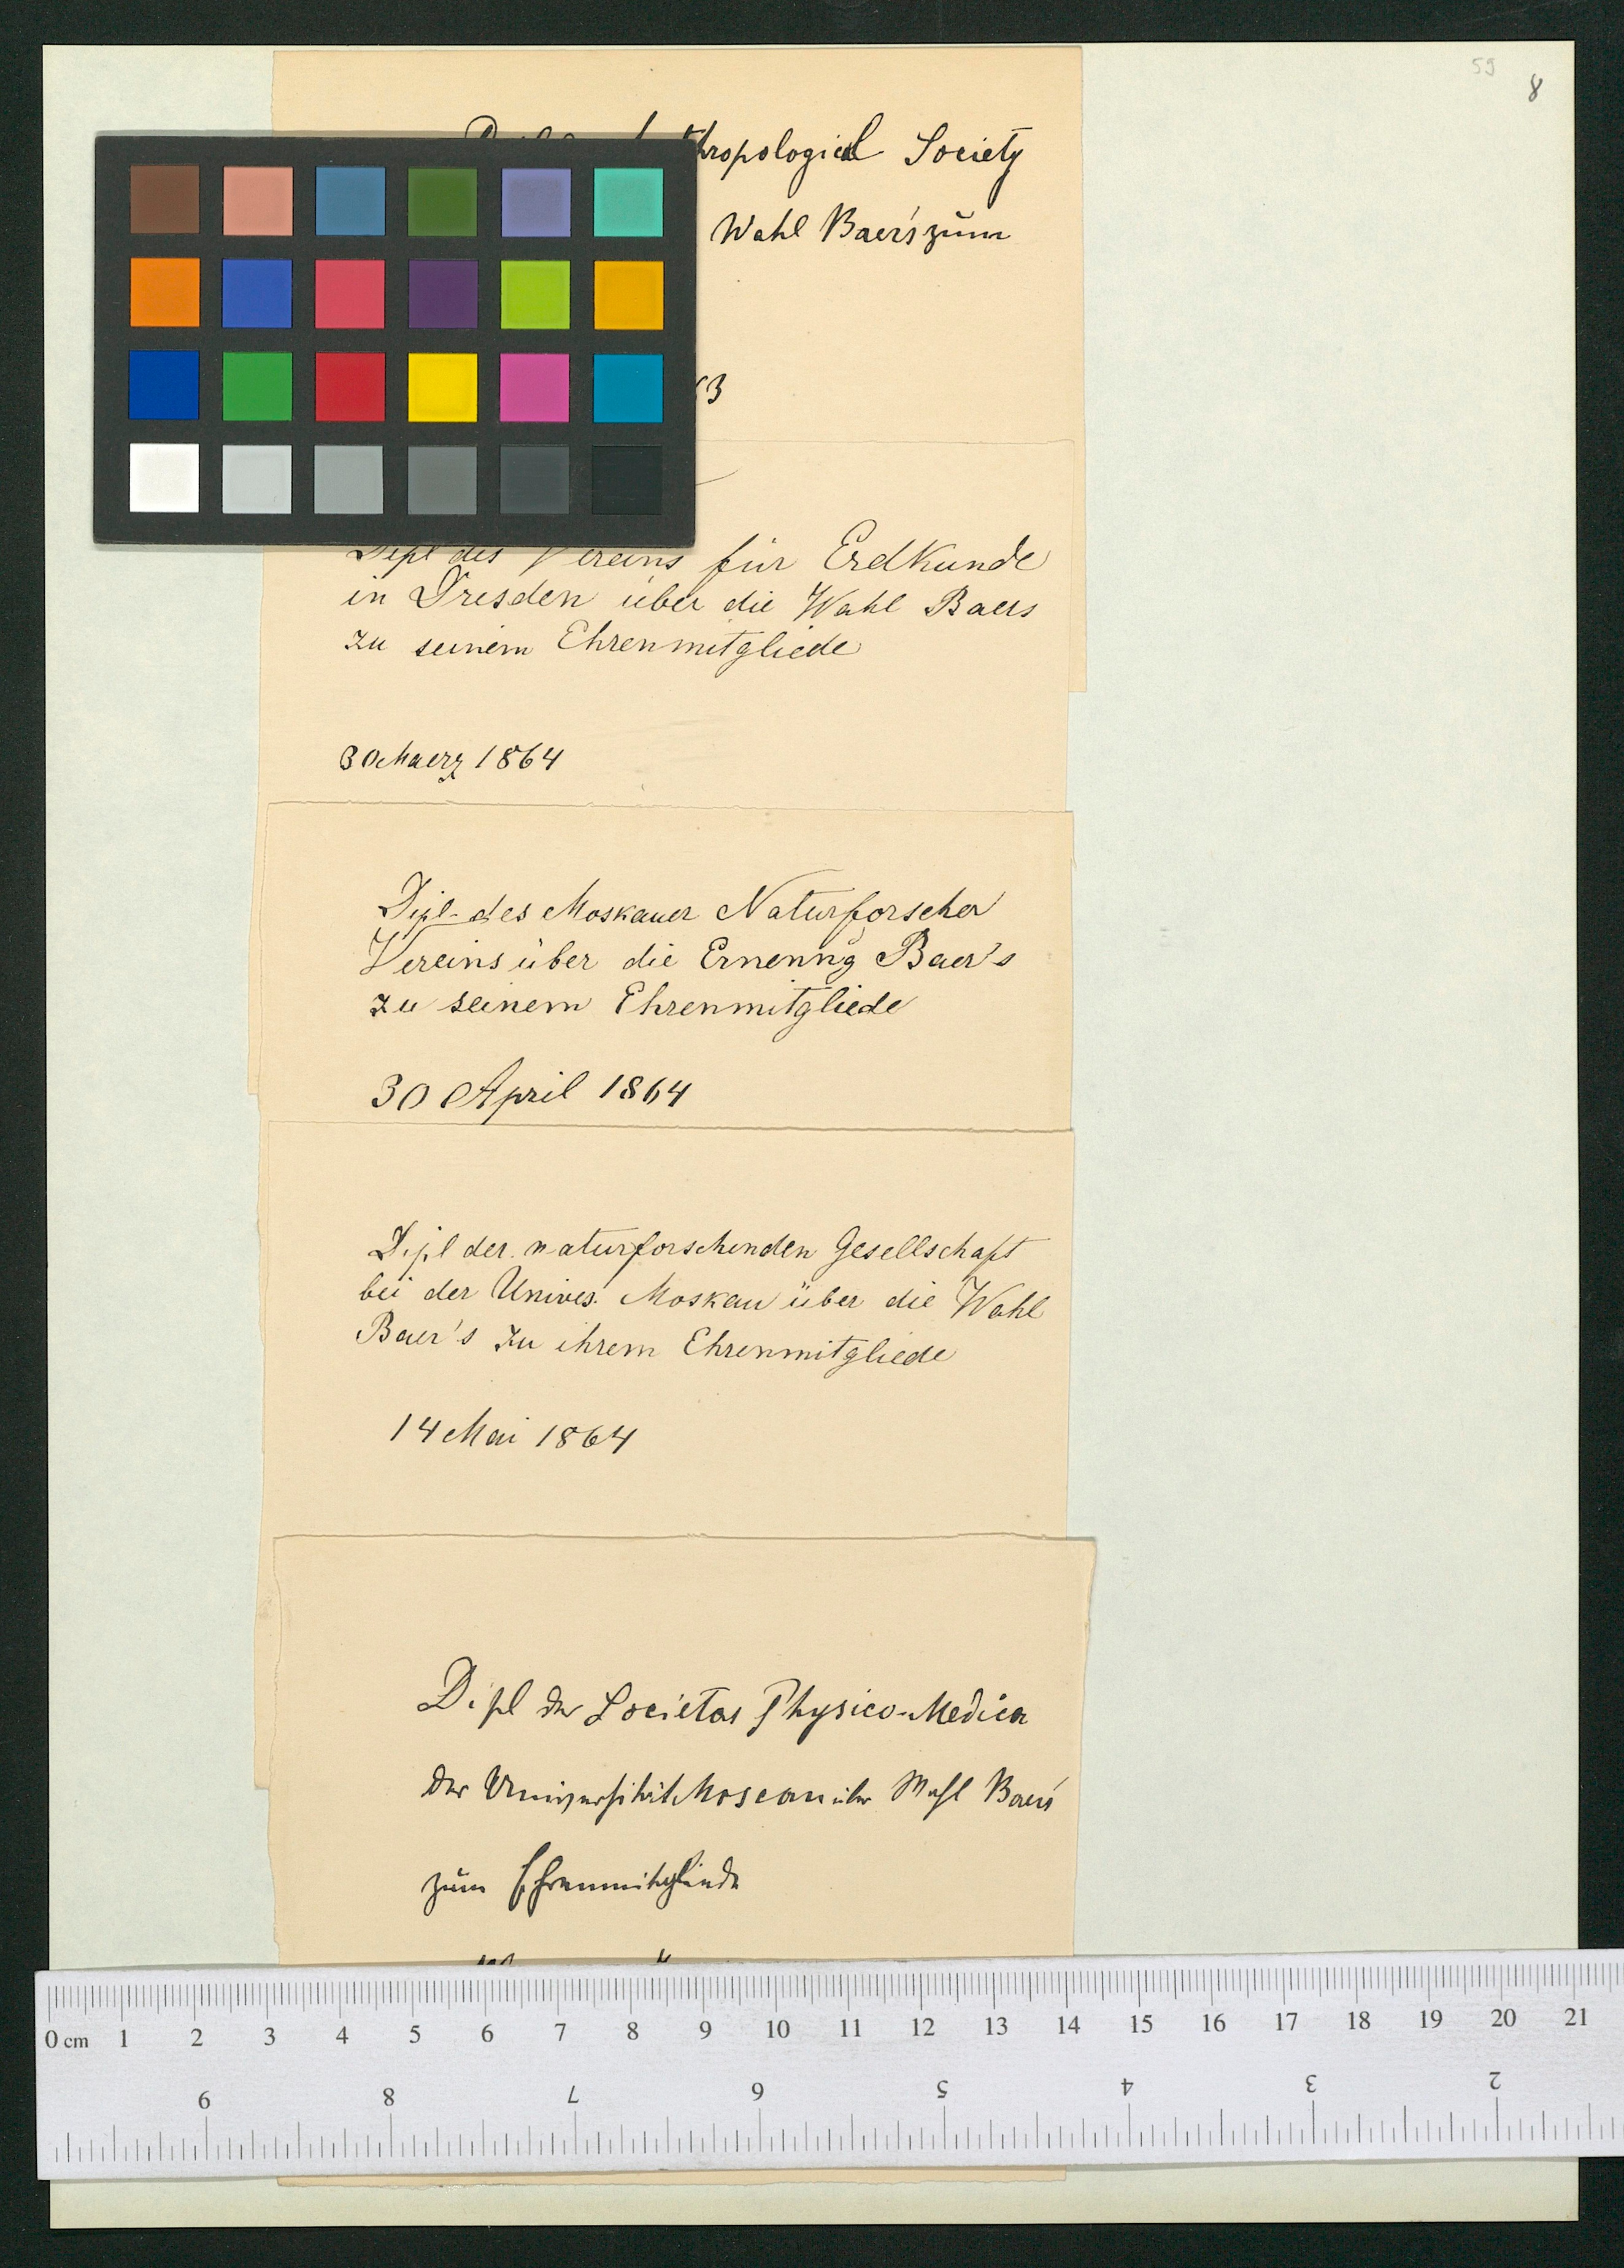 59
8
Anthropological Society
Wahl Baer's zum
63
Dipl des Vereins für Erdkunde
in Dresden über die Wahl Baers
zu seinem Ehrenmitgliede
30 Maerz 1864
Dipl. des Moskauer Naturforscher
Vereins über die Ernenng Baer's
zu seinem Ehrenmitgliede
30 April 1864
Dipl der naturforschenden Gesellschaft
bei der Univers. Moskau über die Wahl
Baer's zu ihrem Ehrenmitgliede
14 Mai 1864
Dipl der Societas Physico-Medica
der Universität Moscau über Wahl Baers
zum Ehrenmitgliede
0 cm 1 2 3 4 5 6 7 8 9 10 11 12 13 14 15 16 17 18 19 20 21
9 8 7 6 5 4 3 2